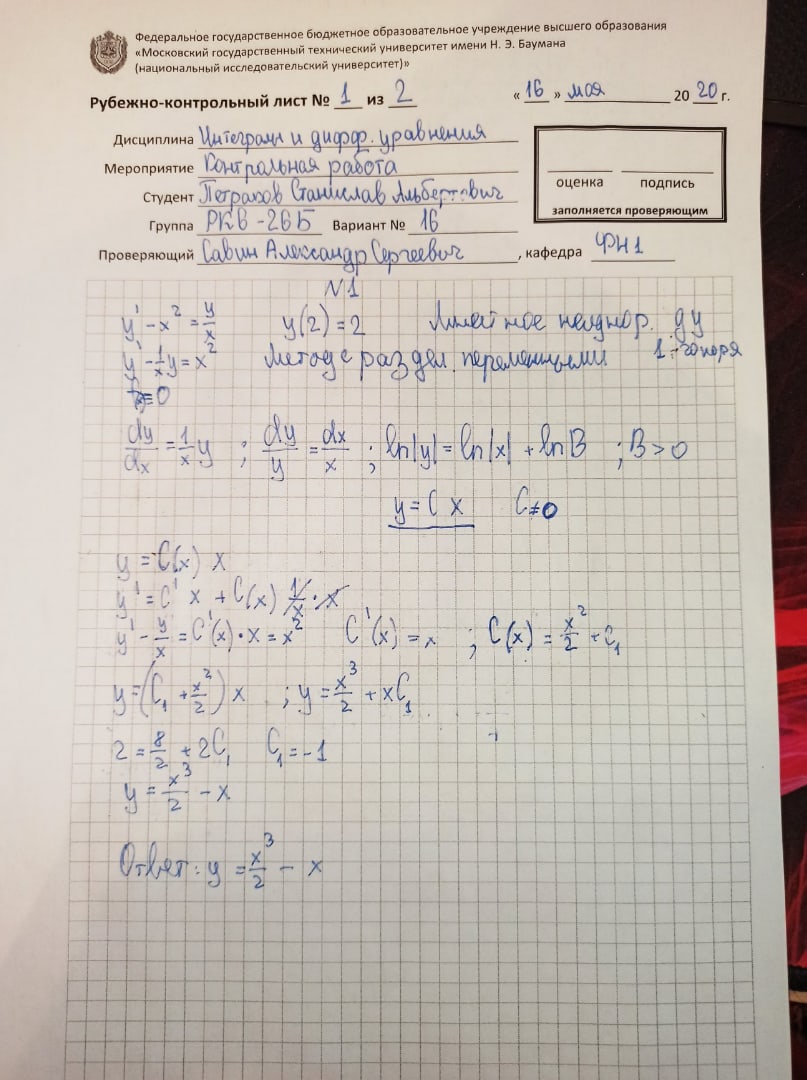 Федеральное государственное бюджетное образовательное учреждение высшего образования
«Московский государственный технический университет имени Н. Э. Баумана
(национальный исследовательский университет)»
Рубежно-контрольный лист № 1 из 2 « 16 » мая 20 20 г.
Дисциплина Интегралы и дифф. уравнения
Мероприятие Контрольная работа
Студент Петраков Станислав Альбертович
оценка подпись
Группа РК6-26Б Вариант № 16
заполняется проверяющим
Проверяющий Савин Александр Сергеевич, кафедра ФН1
N1
y' - x² = y/x y(2) = 2 Линейное неоднор. ду
y' - 1/x y = x² Метод с раздел. переменными 1-го
= 0
dy/dx = 1/x y ; dy/y = dx/x ; ln|y| = ln|x| + ln B ; B > 0
y = C x C ≠ 0
y = C(x) x
y' = C' x + C(x) 1/x · x
y' - y/x = C'(x) · x = x² C'(x) = x ; C(x) = x²/2 + C₁
y = (C₁ + x²/2) x ; y = x³/2 + xC₁
2 = 8/2 + 2C₁ C₁ = -1
y = x³/2 - x
Ответ: y = x³/2 - x